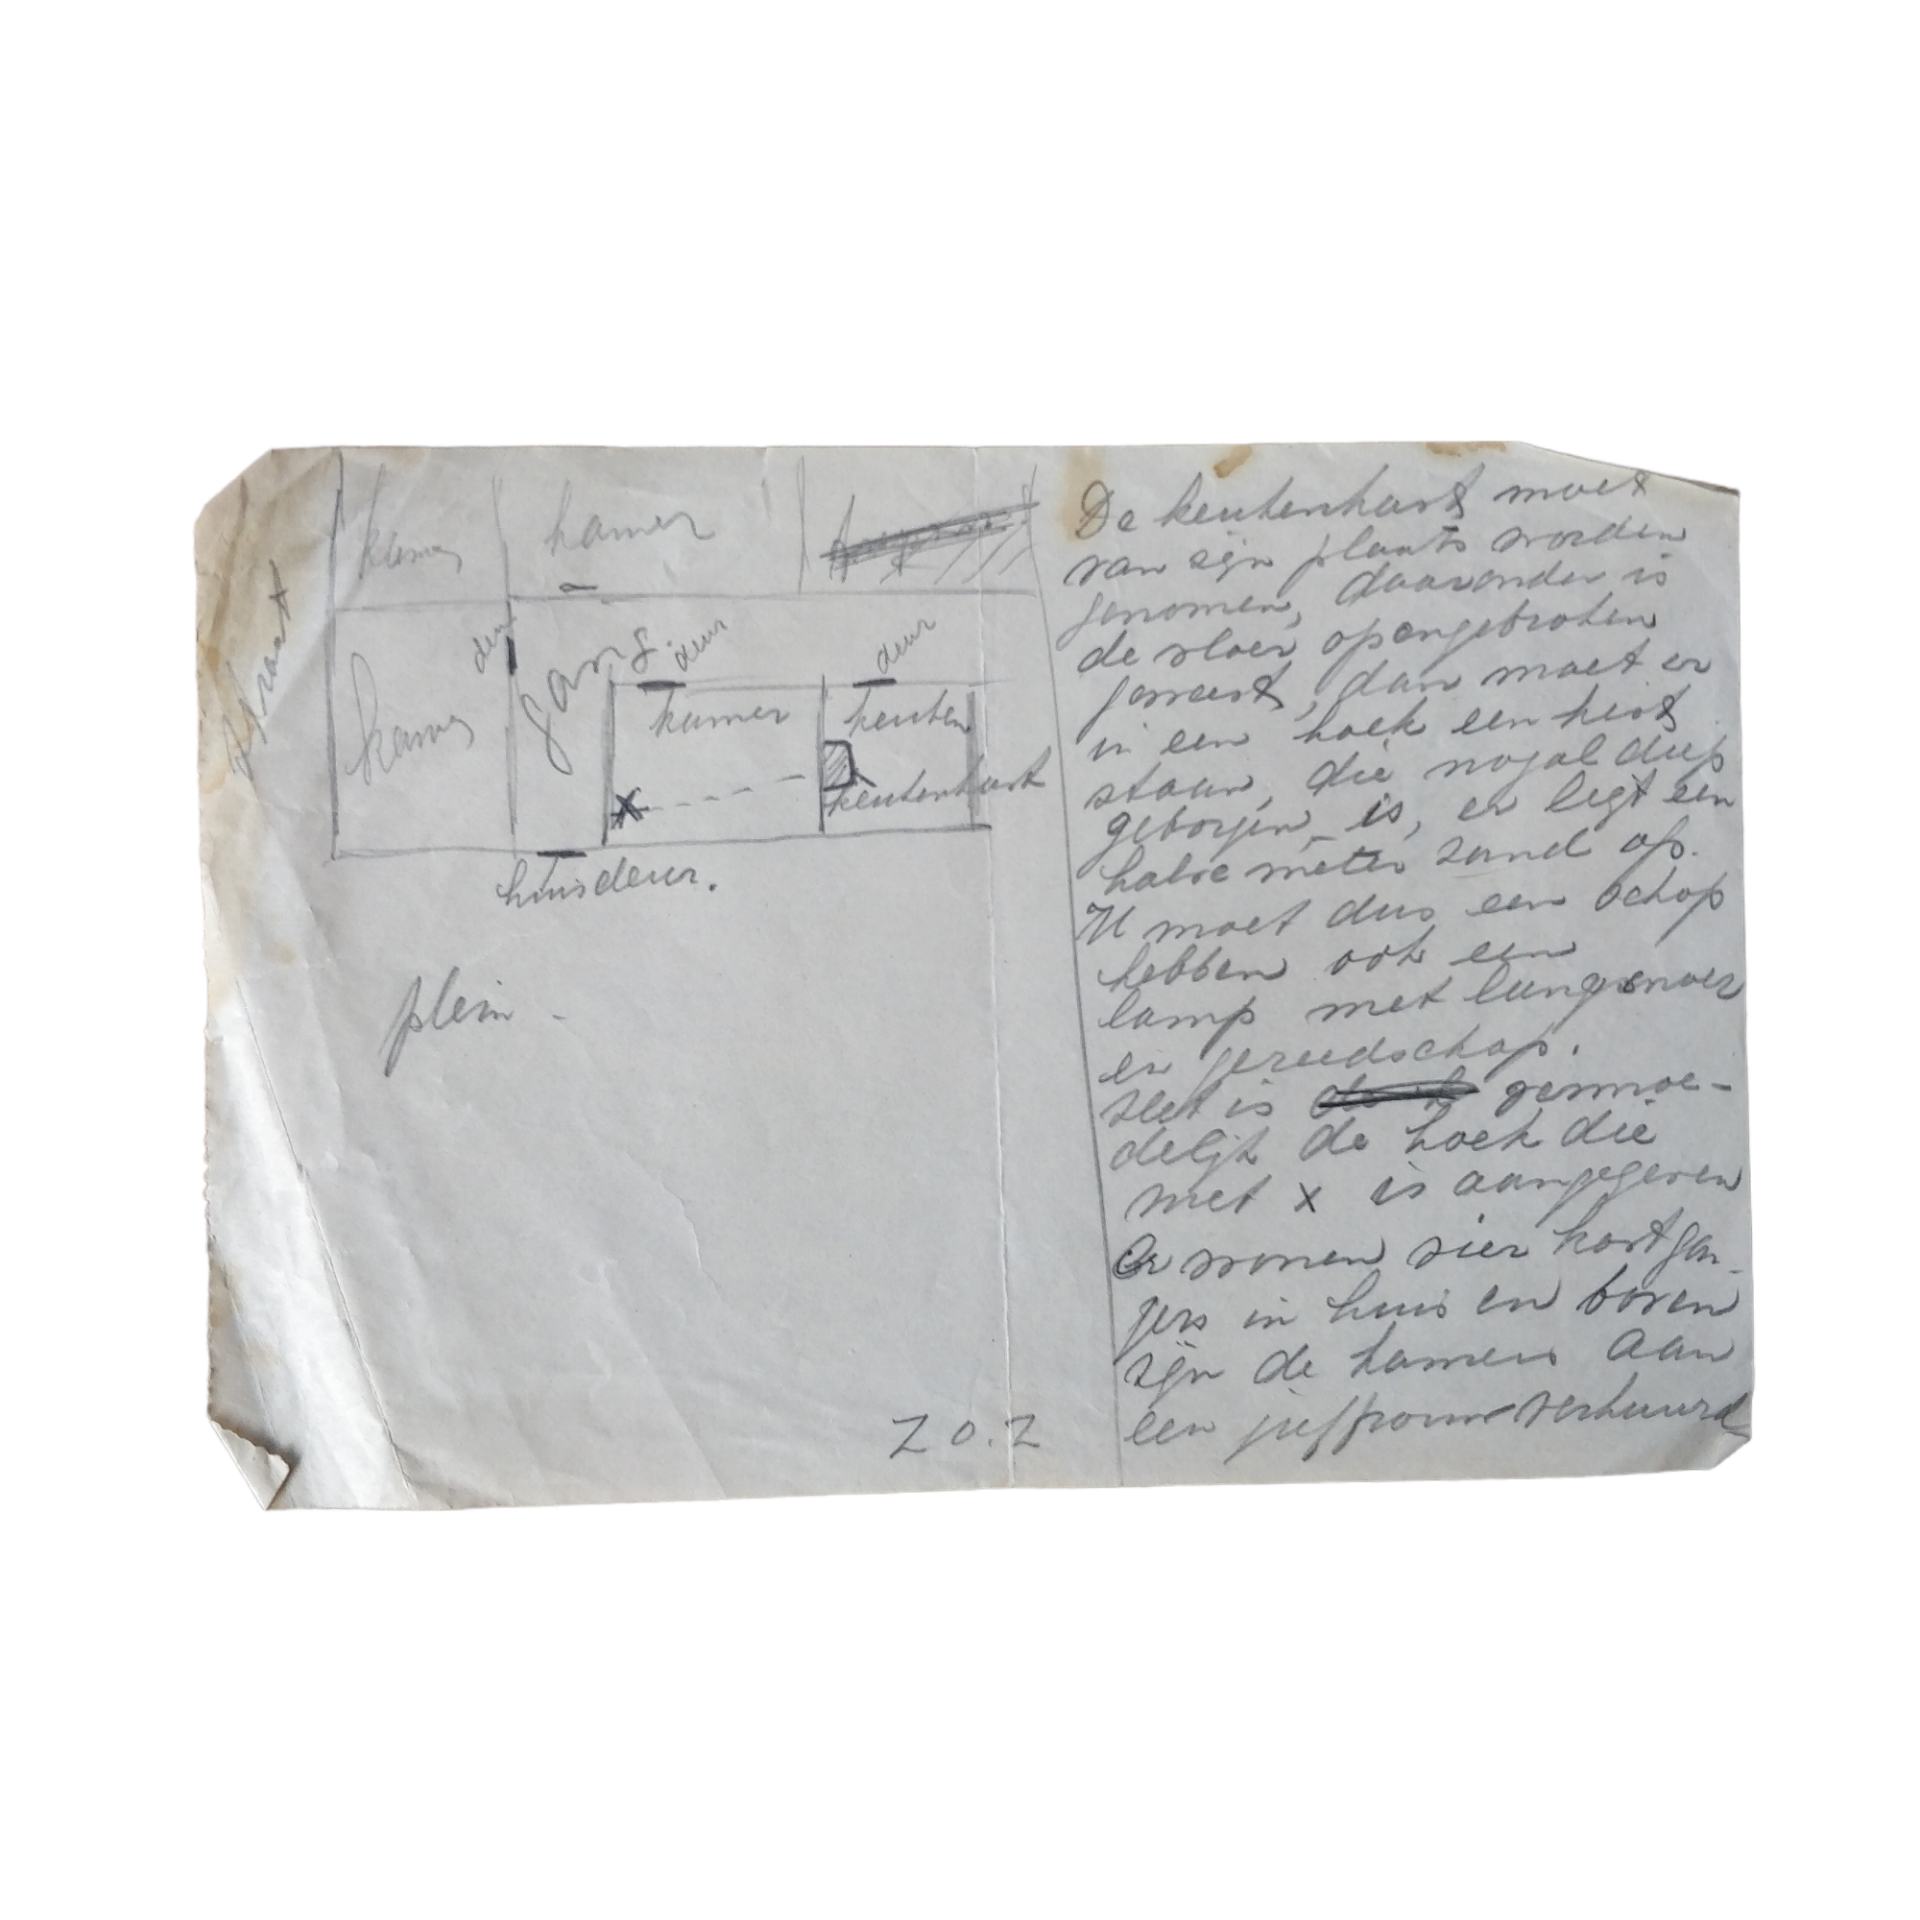 kamer
kamer
straat
kamer
deur
gang.
deur
deur
kamer
keuken
keukenkast
X
huisdeur.
plein -
Z O.Z
De keukenkast moet
van zijn plaats worden
genomen, daaronder is
de vloer opengebroken
geweest, dan moet er
in een hoek een kist
staan, die nogal diep
geborgen is, er legt een
halve meter zand op.
U moet dus een schop
hebben ook een
lamp met lang snoer
en gereedschap.
Het is vermoe-
delijk de hoek die
met x is aangegeven
Er wonen vier kostgan-
gers in huis en boven
zijn de kamers aan
een juffrouw verhuurd